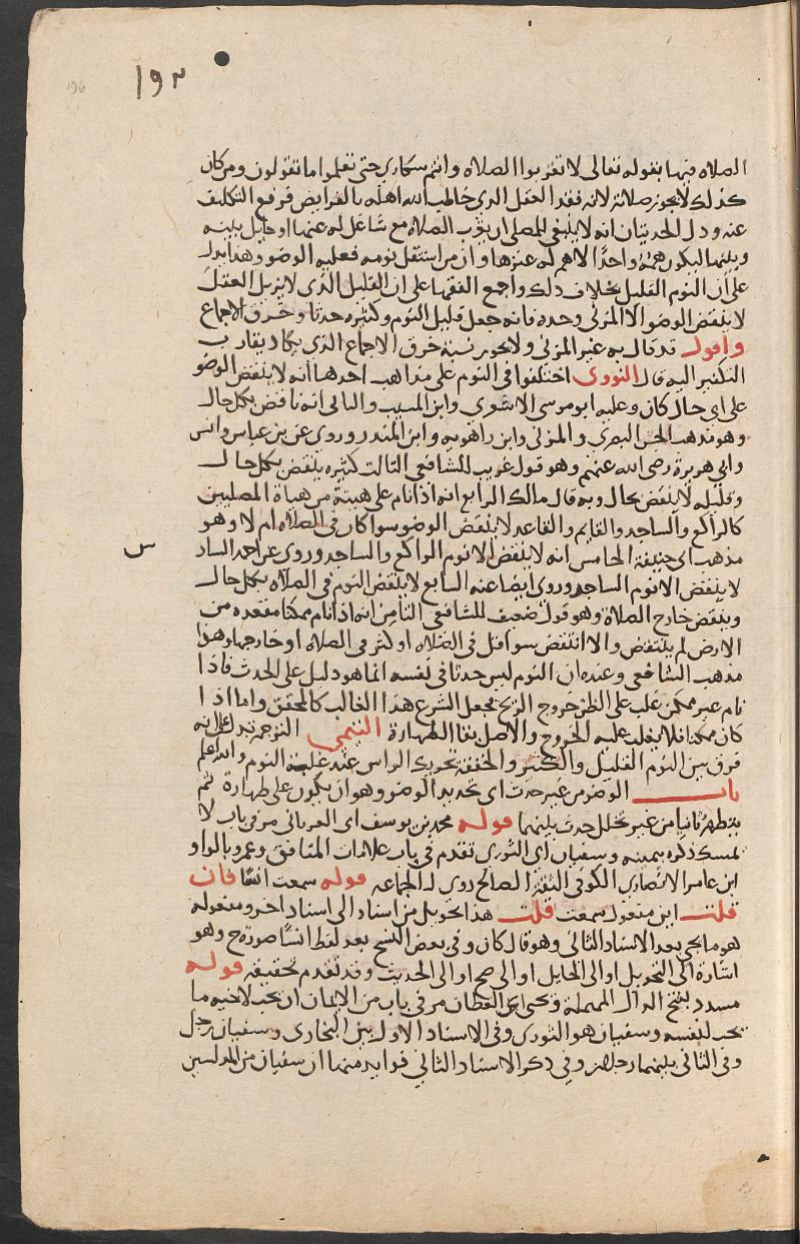 196
١٩٢
الصلاه فيها بقوله تعالى لا تقربوا الصلاه وانتم سكارى حتى تعلموا ما تقولون ومن كان
كذلك لا تجوز صلاته لانه فقد العقل الذي خاطب الله اهله بالفرايض فرفع التكليف
عنه ودل الحديثان انه لا ينبغي للمصلي ان يقرب الصلاه مع شاغل له عنها او حايل بينه
وبينها ليكون همه واحدا لا هم له غيرها وان من استثقل نومه فعليه الوضو وهذا يدل
على ان النوم القليل بخلاف ذلك واجمع الفقها على ان القليل الذي لا يزيل العقل
لا ينقض الوضو الا المزني وحده فانه جعل قليل النوم وكثيره حدثا وخرق الاجماع
واقول قد قال به غير المزني ولا يجوز نسبة خرق الاجماع الذي يكاد يقارب
التكفير اليه قال النووى اختلفوا في النوم على مذاهب احدها انه لا ينقض الوضو
على اى حال كان وعليه ابو موسى الاشعرى وابن المسيب والثاني انه ناقض بكل حال
وهو مذهب الحسن البصرى والمزنى وابن راهويه وابن المنذر وروي عن بن عباس وانس
وابي هريرة رضى الله عنهم وهو قول غريب للشافعى الثالث كثيره ينقض بكل حال
وقليله لا ينقض بحال وبه قال مالك الرابع انه اذا نام على هيئة من هياة المصلين
كالراكع والساجد والقايم والقاعد لا ينقض الوضو سوا كان في الصلاه ام لا وهو
مذهب ابى حنيفة الخامس انه لا ينقض الا نوم الراكع والساجد وروى عن احمد الساد
س
لا ينقض الا نوم الساجد وروى ايضا عنه السابع لا ينقض النوم في الصلاه بكل حال
وينقض خارج الصلاة وهو قول ضعيف للشافعى الثامن انه اذا نام ممكنا مقعده من
الارض لم ينتقض والا انتقض سوا قل في الصلاه او كثر في الصلاه او خارجها وهذا
مذهب الشافعى وعنده ان النوم ليس حدثا في نفسه انما هو دليل على الحدث فاذا
نام غير ممكن غلب على الظن خروج الريح فجعل الشرع هذا الغالب كالمحقق واما اذا
كان ممكنا فلا يغلب عليه الخروج والاصل بقا الطهارة التيمى الترجمة تدل على انه
فرق بين النوم القليل والكثير والخفقه تحريك الراس عند غلبة النوم والله اعلم
باب الوضو من غير حدث اى تجديد الوضو وهو ان يكون على طهارة ثم
يتطهر ثانيا من غير تخلل حدث بينهما قوله محمد بن يوسف اى الفريابى مر في باب لا
يمسك ذكره بيمينه وسفيان اى الثورى تقدم في باب علامات المنافق وعمرو بالواو
ابن عامر الانصاري الكوفى الثقة الصالح روي له الجماعه قوله سمعت انسا فان
قلت اين مفعول سمعت قلت هذا تحويل من اسناد الى اسناد اخر ومفعوله
هو ما يجى بعد الاسناد الثانى وهو قال كان وفي بعض النسخ بعد لفظ انسا صورة ح وهو
اشارة الى التحويل او الى الحايل او الى صح او الى الحديث وقد تقدم تحقيقه قوله
مسدد بفتح الدال المهملة ويحيى اى القطان مر في باب من الايمان ان يحب لاخيه ما
يحب لنفسه وسفيان هو الثورى وفى الاسناد الاول بين البخارى وسفيان رجل
وفى الثانى بينهما رجلان وفي ذكر الاسناد الثاني فوايد منها ان سفيان من المدلسين